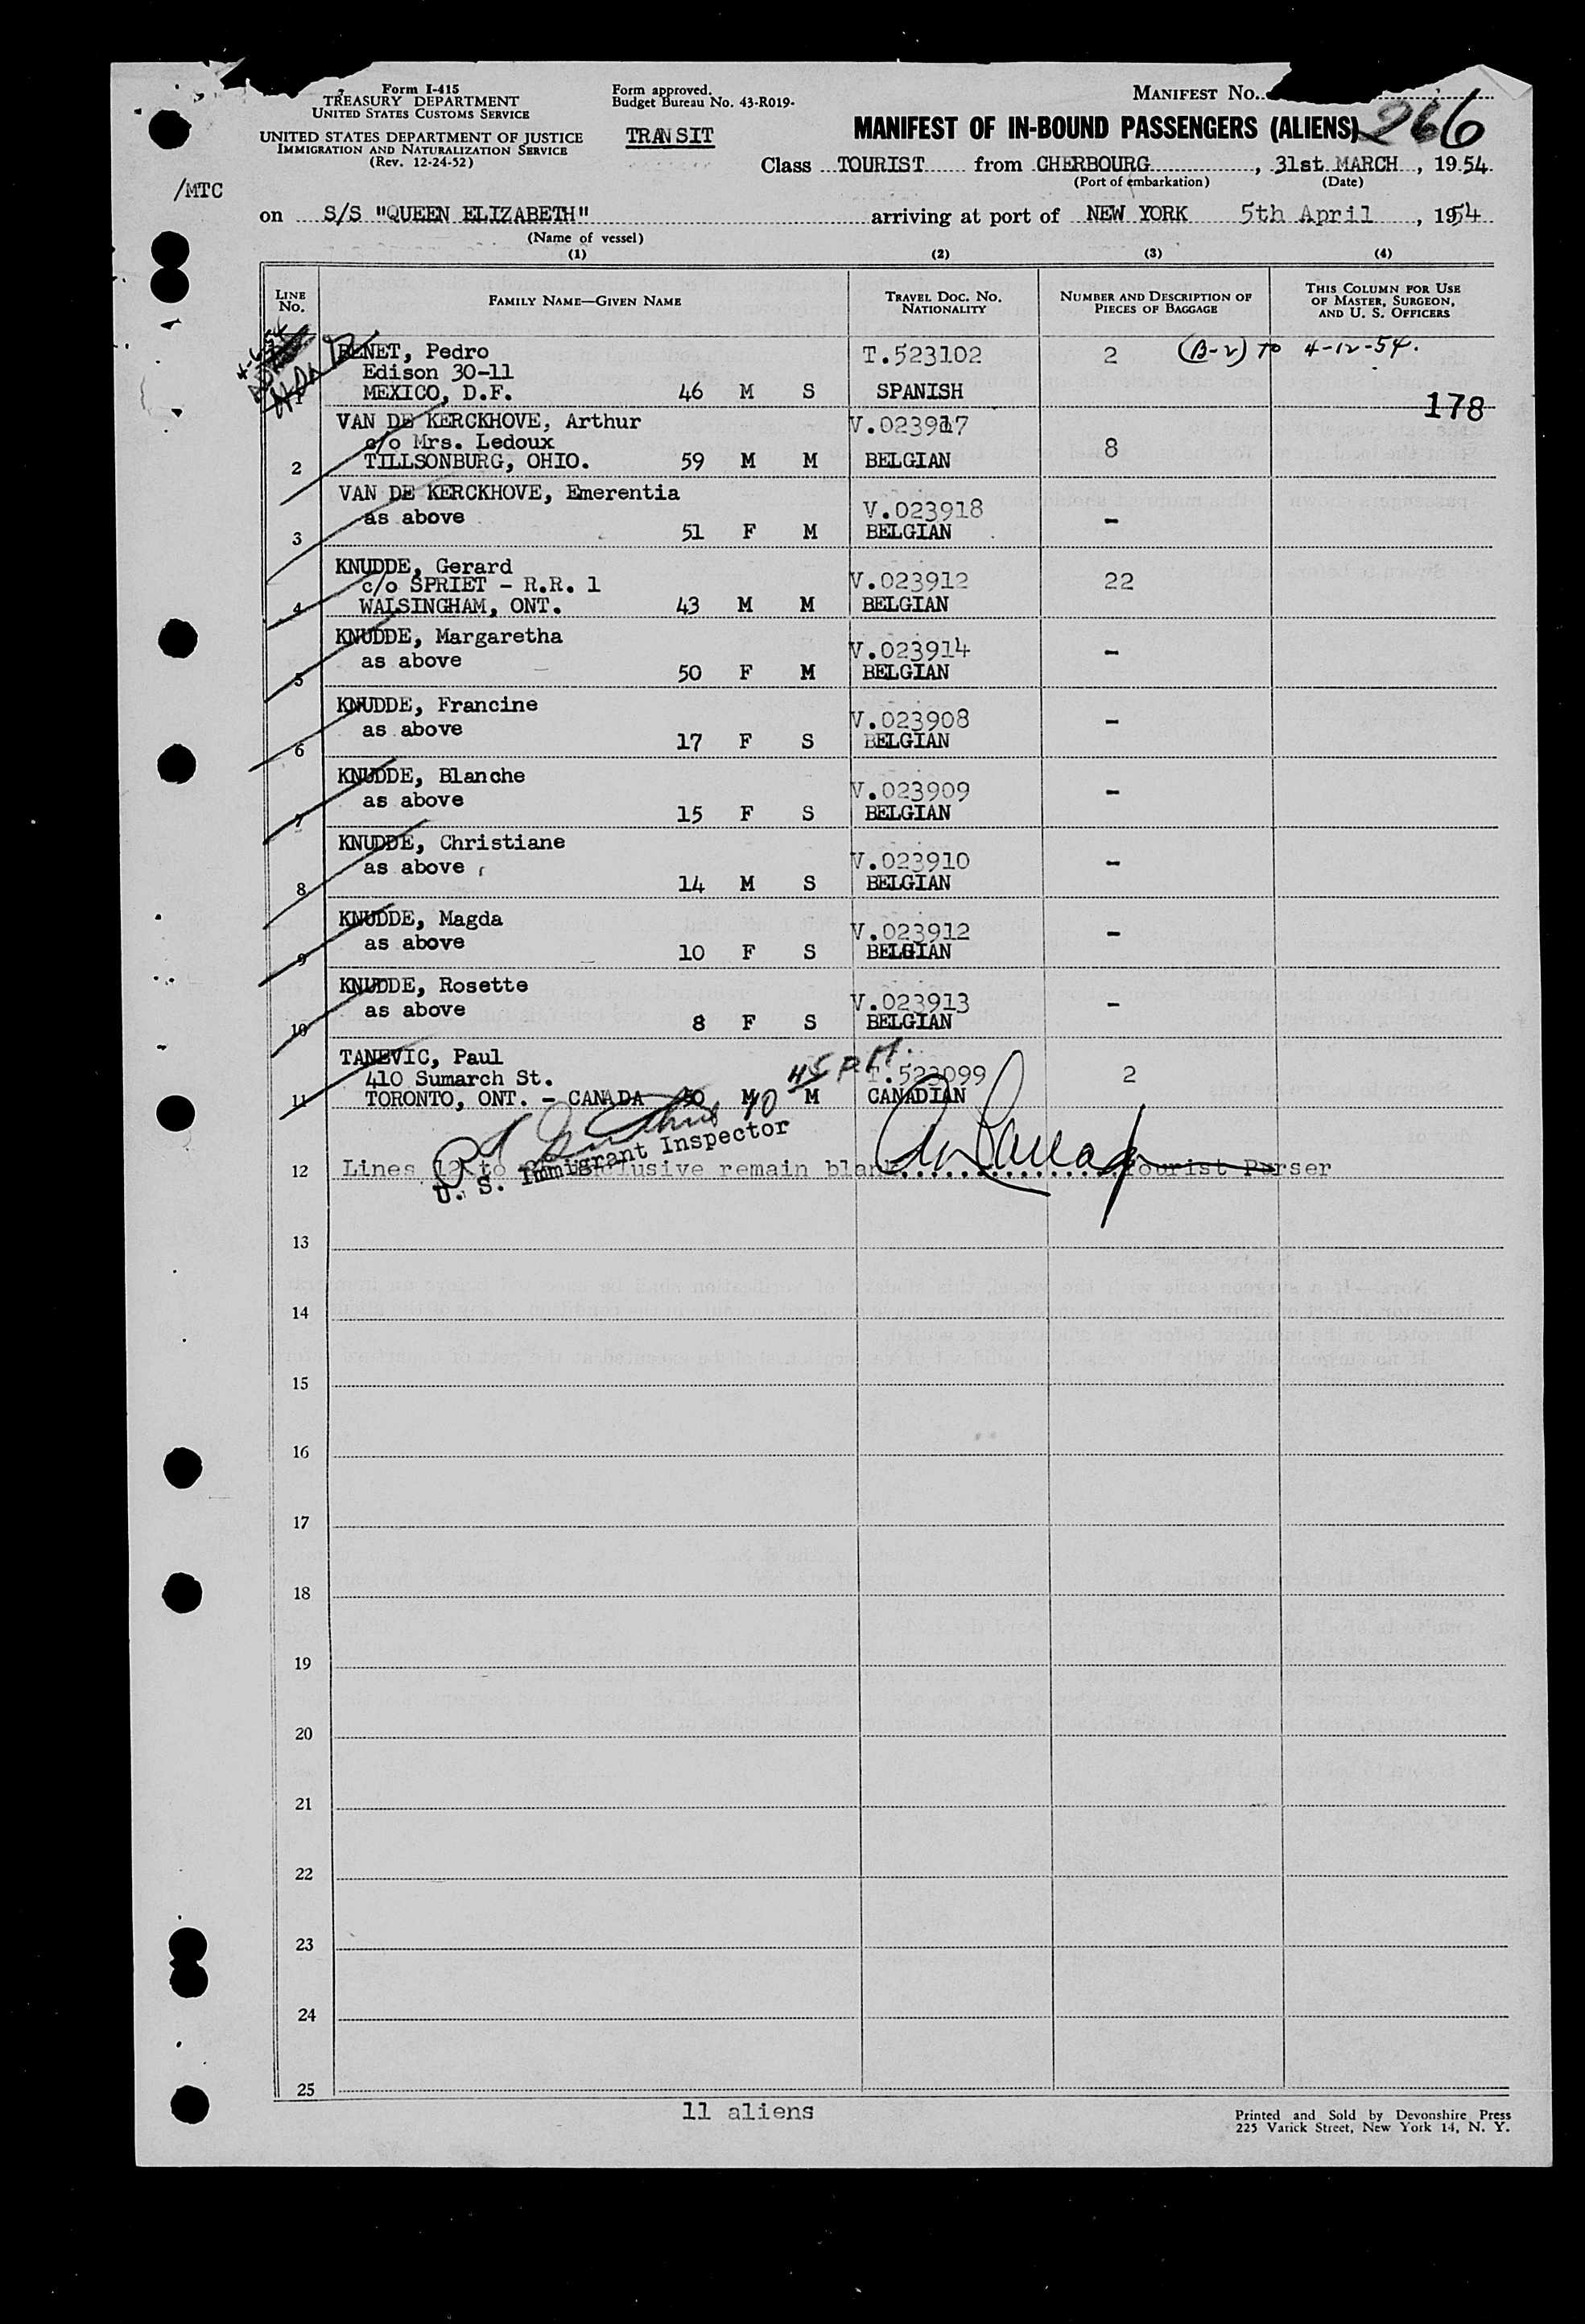 Form I-415
TREASURY DEPARTMENT
UNITED STATES CUSTOMS SERVICE
UNITED STATES DEPARTMENT OF JUSTICE
IMMIGRATION AND NATURALIZATION SERVICE
(Rev. 12-24-52)
Form approved.
Budget Bureau No. 43-R019-
TRANSIT
MANIFEST No.
266
MANIFEST OF IN-BOUND PASSENGERS (ALIENS)
Class TOURIST from CHERBOURG, 31st MARCH, 1954
(Port of embarkation) (Date)
/MTC
on S/S "QUEEN ELIZABETH" arriving at port of NEW YORK 5th April, 1954
(Name of vessel)
(1) (2) (3) (4)
LINE No. FAMILY NAME—GIVEN NAME TRAVEL DOC. No. NATIONALITY NUMBER AND DESCRIPTION OF PIECES OF BAGGAGE THIS COLUMN FOR USE OF MASTER, SURGEON, AND U. S. OFFICERS
4-6-54
BENET, Pedro T.523102 2 (B-2) TO 4-12-54.
Edison 30-11
1 MEXICO, D.F. 46 M S SPANISH
178
VAN DE KERCKHOVE, Arthur V.023917
c/o Mrs. Ledoux
2 TILLSONBURG, OHIO. 59 M M BELGIAN 8
VAN DE KERCKHOVE, Emerentia
as above V.023918
3 51 F M BELGIAN -
KNUDDE, Gerard
c/o SPRIET - R.R. 1 V.023912 22
4 WALSINGHAM, ONT. 43 M M BELGIAN
KNUDDE, Margaretha
as above V.023914 -
5 50 F M BELGIAN
KNUDDE, Francine
as above V.023908 -
6 17 F S BELGIAN
KNUDDE, Blanche
as above V.023909 -
7 15 F S BELGIAN
KNUDDE, Christiane
as above V.023910 -
8 14 M S BELGIAN
KNUDDE, Magda
as above V.023912 -
9 10 F S BELGIAN
KNUDDE, Rosette
as above V.023913 -
10 8 F S BELGIAN
TANEVIC, Paul
410 Sumarch St. T.523099 2
11 TORONTO, ONT. - CANADA 50 M M CANADIAN
10 45 P.M.
U. S. Immigrant Inspector
12 Lines 12 to inclusive remain blank Tourist Purser
13
14
15
16
17
18
19
20
21
22
23
24
25
11 aliens
Printed and Sold by Devonshire Press
225 Varick Street, New York 14, N. Y.